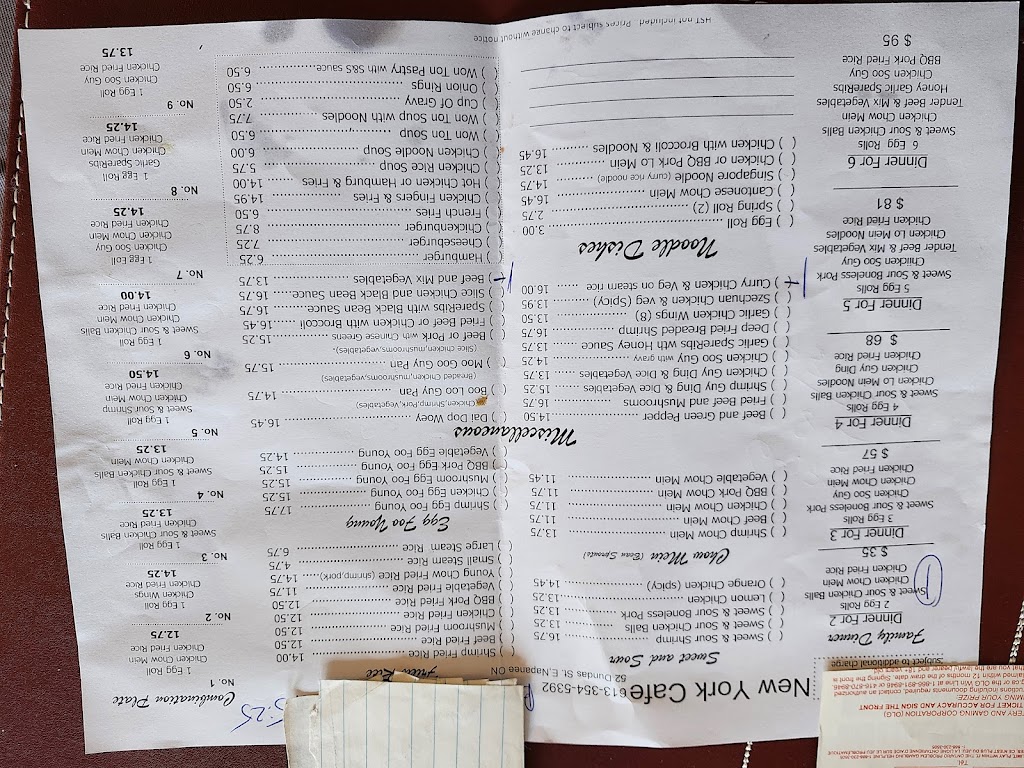 New York Cafe 613-354-5392
52 Dundas St. E, Napanee ON
Subject to additional charge
Family Dinner
Dinner For 2
2 Egg Rolls
Sweet & Sour Chicken Balls
Chicken Chow Mein
Chicken Fried Rice
$ 35
Dinner For 3
3 Egg Rolls
Sweet & Sour Boneless Pork
Chicken Soo Guy
Chicken Chow Mein
Chicken Fried Rice
$ 57
Dinner For 4
4 Egg Rolls
Sweet & Sour Chicken Balls
Chicken Lo Mein Noodles
Chicken Guy Ding
Chicken Fried Rice
$ 68
Dinner For 5
5 Egg Rolls
Sweet & Sour Boneless Pork
Chicken Soo Guy
Tender Beef & Mix Vegetables
Chicken Lo Mein Noodles
Chicken Fried Rice
$ 81
Dinner For 6
6 Egg Rolls
Sweet & Sour Chicken Balls
Chicken Chow Mein
Tender Beef & Mix Vegetables
Honey Garlic SpareRibs
Chicken Soo Guy
BBQ Pork Fried Rice
$ 95
Sweet and Sour
( ) Sweet & Sour Shrimp 16.75
( ) Sweet & Sour Chicken Balls 13.25
( ) Sweet & Sour Boneless Pork 13.25
( ) Lemon Chicken 13.25
( ) Orange Chicken (spicy) 14.45
Chow Mein (Bean Sprouts)
( ) Shrimp Chow Mein 13.75
( ) Beef Chow Mein 11.75
( ) Chicken Chow Mein 11.75
( ) BBQ Pork Chow Mein 11.75
( ) Vegetable Chow Mein 11.45
Miscellaneous
( ) Beef and Green Pepper 14.50
( ) Fried Beef and Mushrooms 16.75
( ) Shrimp Guy Ding & Dice Vegetables 15.25
( ) Chicken Guy Ding & Dice Vegetables 13.75
( ) Chicken Soo Guy with gravy 14.25
( ) Garlic SpareRibs with Honey Sauce 13.75
( ) Deep Fried Breaded Shrimp 16.75
( ) Garlic Chicken Wings (8) 13.50
( ) Szechuan Chicken & veg (Spicy) 13.95
( ) Curry Chicken & veg on steam rice 16.00
Noodle Dishes
( ) Egg Roll 3.00
( ) Spring Roll (2) 2.75
( ) Cantonese Chow Mein 16.45
( ) Singapore Noodle (curry rice noodle) 14.75
( ) Chicken or BBQ Pork Lo Mein 13.25
( ) Chicken with Broccoli & Noodles 16.45
HST not included Prices subject to change without notice
Fried Rice
( ) Shrimp Fried Rice 14.00
( ) Beef Fried Rice 12.50
( ) Mushroom Fried Rice 12.50
( ) Chicken Fried Rice 12.50
( ) BBQ Pork Fried Rice 12.50
( ) Vegetable Fried Rice 11.75
( ) Young Chow Fried Rice (shrimp,pork) 14.75
( ) Small Steam Rice 4.75
( ) Large Steam Rice 6.75
Egg Foo Young
( ) Shrimp Egg Foo Young 17.75
( ) Chicken Egg Foo Young 15.25
( ) Mushroom Egg Foo Young 15.25
( ) BBQ Pork Egg Foo Young 15.25
( ) Vegetable Egg Foo Young 14.25
( ) Dai Dop Woey 16.45
(Chicken,Shrimp,Pork,Vegetables)
( ) Boo Loo Guy Pan 14.75
(Breaded Chicken,mushrooms,vegetables)
( ) Moo Goo Guy Pan 15.75
(Slice chicken,mushrooms,vegetables)
( ) Beef or Pork with Chinese Greens 15.25
( ) Fried Beef or Chicken with Broccoli 16.45
( ) SpareRibs with Black Bean Sauce 16.75
( ) Slice Chicken and Black Bean Sauce 16.75
( ) Beef and Mix Vegetables 13.75
( ) Hamburger 6.25
( ) Cheeseburger 7.25
( ) Chickenburger 8.75
( ) French Fries 6.50
( ) Chicken Fingers & Fries 14.95
( ) Hot Chicken or Hamburg & Fries 14.00
( ) Chicken Rice Soup 5.75
( ) Chicken Noodle Soup 6.00
( ) Won Ton Soup 6.50
( ) Won Ton Soup with Noodles 7.75
( ) Cup Of Gravy 2.50
( ) Onion Rings 6.50
( ) Won Ton Pastry with S&S sauce 6.50
Combination Plate
No. 1
1 Egg Roll
Chicken Chow Mein
Chicken Fried Rice
12.75
No. 2
1 Egg Roll
Chicken Wings
Chicken Fried Rice
14.25
No. 3
1 Egg Roll
Sweet & Sour Chicken Balls
Chicken Fried Rice
13.25
No. 4
Sweet & Sour Chicken Balls
Chicken Chow Mein
13.25
No. 5
1 Egg Roll
Sweet & Sour Shrimp
Chicken Chow Mein
Chicken Fried Rice
14.50
No. 6
1 Egg Roll
Sweet & Sour Chicken Balls
Chicken Chow Mein
Chicken Fried Rice
14.00
No. 7
1 Egg Eoll
Chicken Soo Guy
Chicken Chow Mein
Chicken Fried Rice
14.25
No. 8
1 Egg Roll
Garlic SpareRibs
Chicken Chow Mein
Chicken Fried Rice
14.25
No. 9
1 Egg Roll
Chicken Soo Guy
Chicken Fried Rice
13.75
TICKET FOR ACCURACY AND SIGN THE FRONT